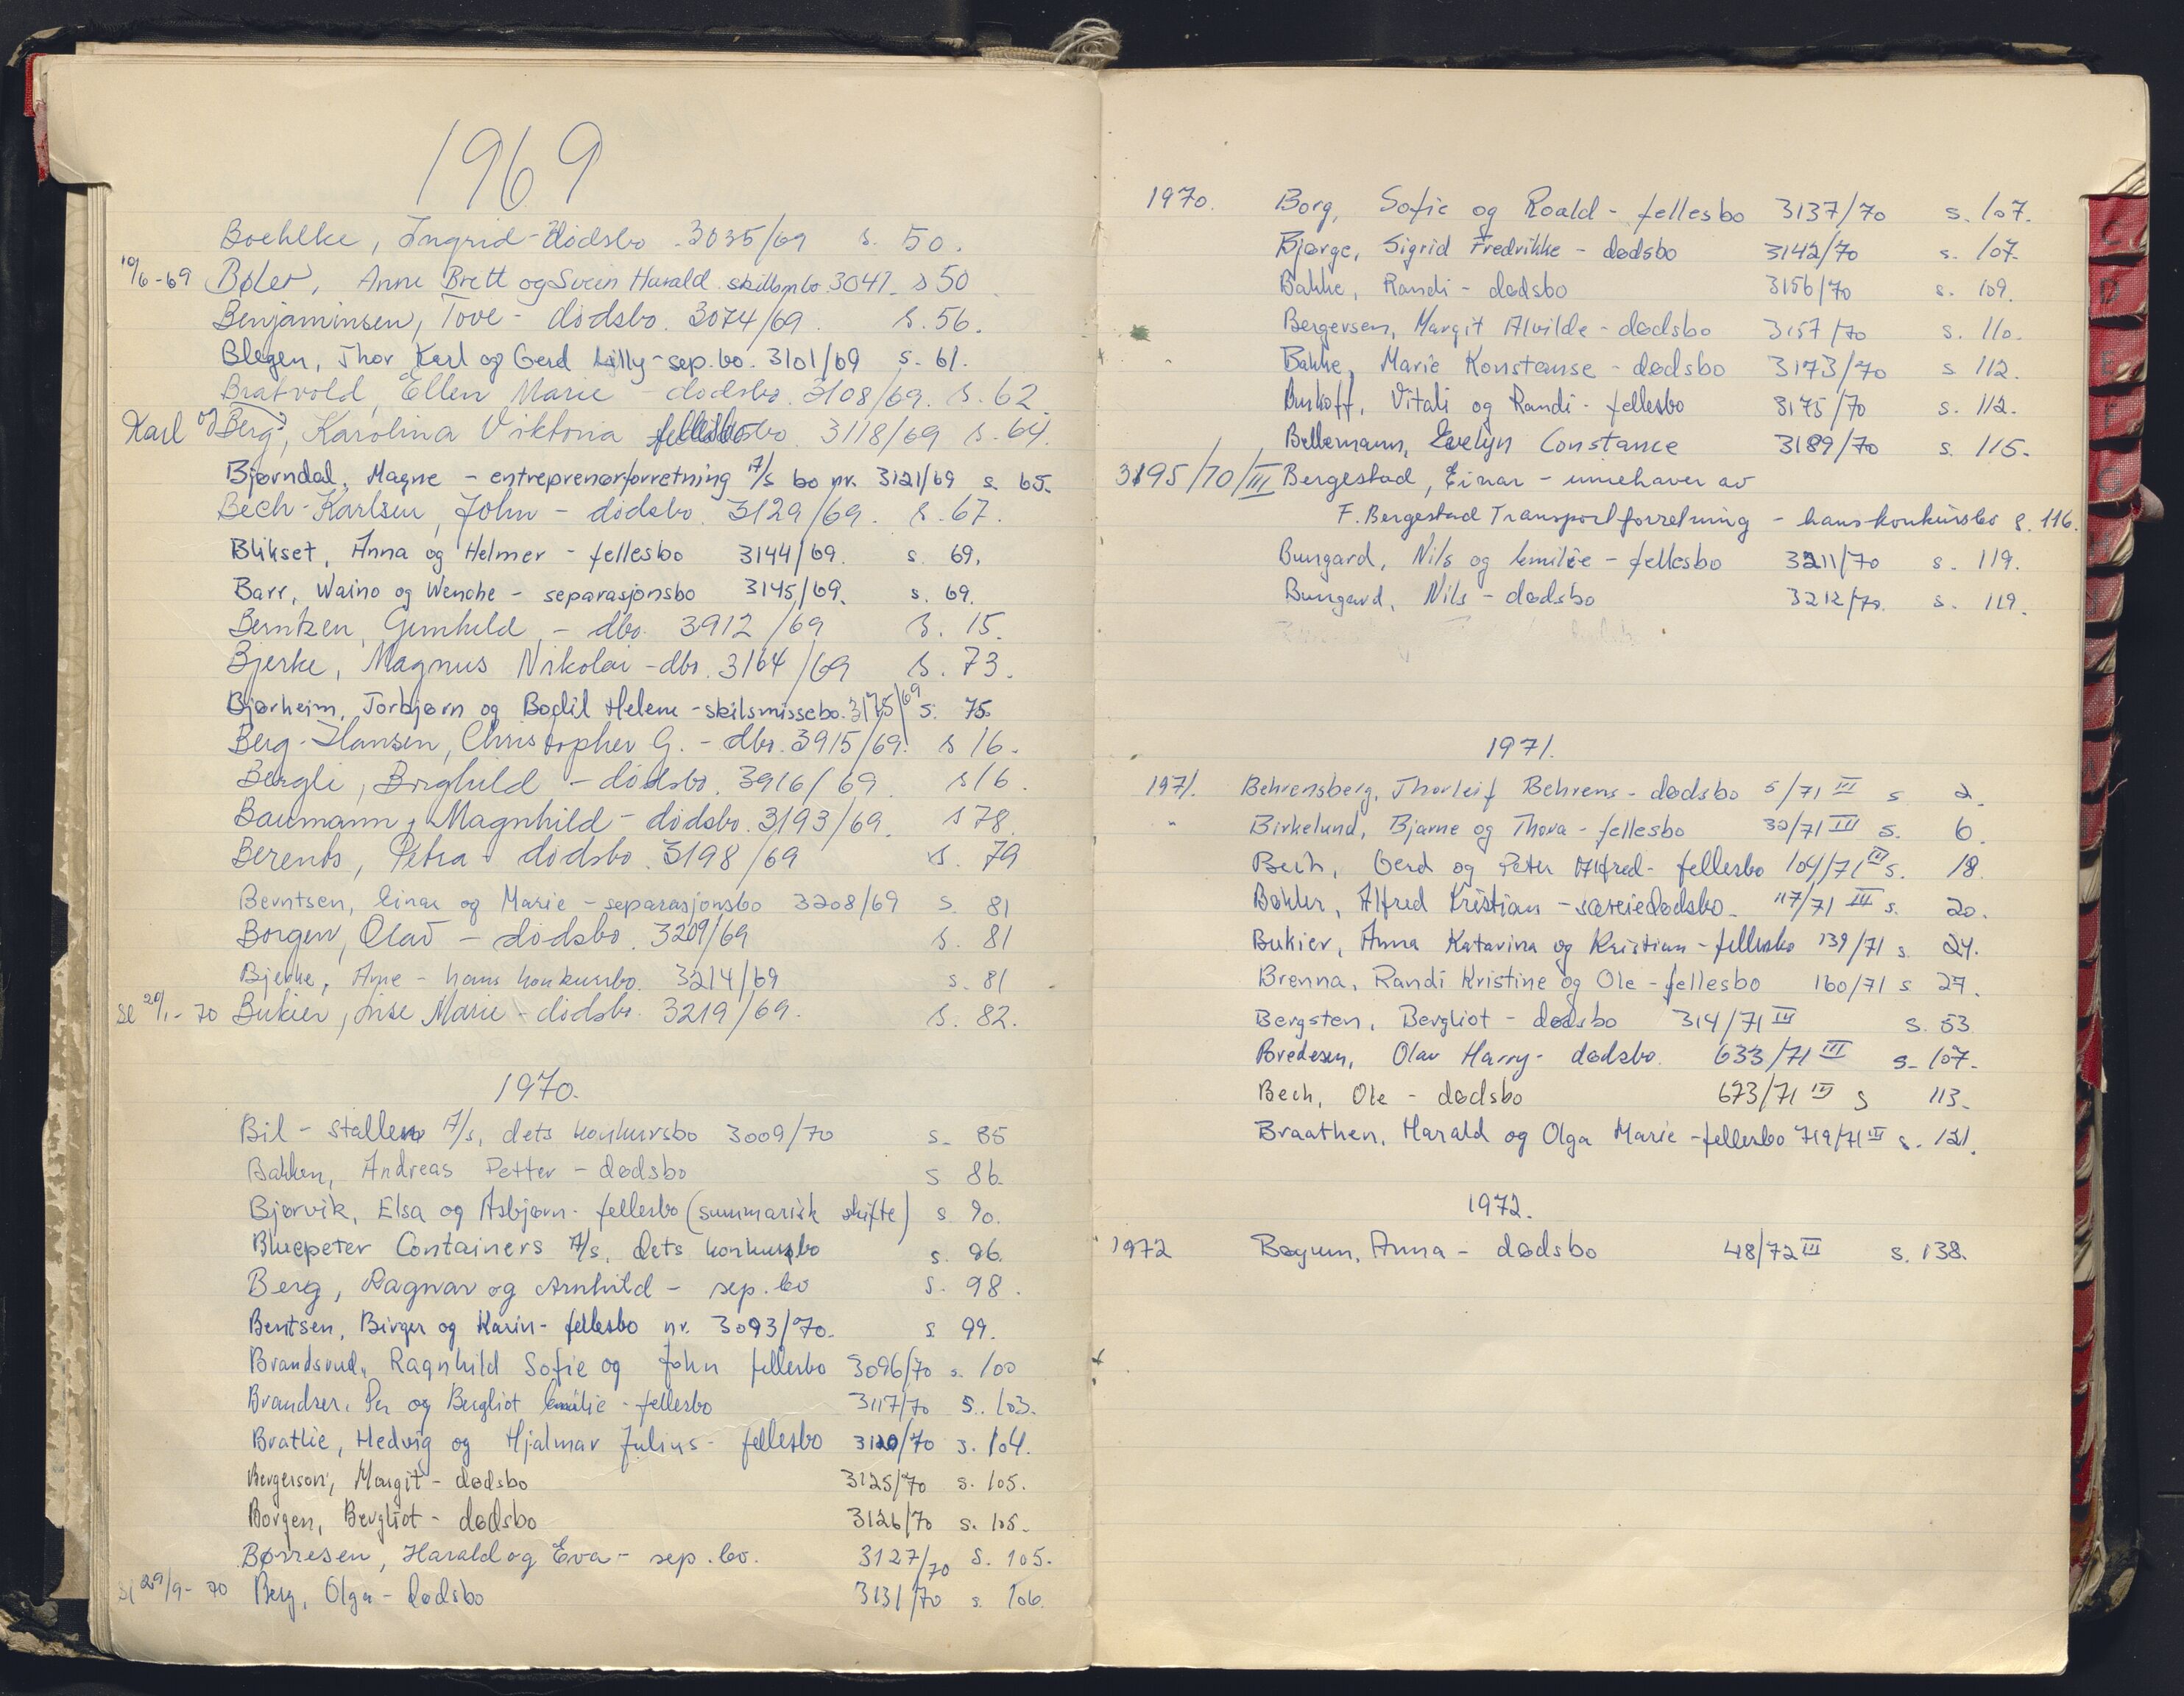 1969
Boehlke, Ingrid - dødsbo 3035/69 s. 50.
10/6-69 Bøler, Anne Brett og Svein Harald skilsm.bo 3041 s 50
Benjaminsen, Tove - dødsbo. 3074/69. s. 56.
Blegen, Thor Karl og Gerd Lilly - sep.bo. 3101/69 s. 61.
Bratvold, Ellen Marie - dødsbo. 3108/69. s. 62
Karl og Berg, Karolina Viktoria fellesbo. 3118/69 s. 64.
Bjørndal, Magne - entreprenørforretning A/S bo nr. 3121/69 s 65.
Bech-Karlsen, John - dødsbo. 3129/69. s. 67.
Blikset, Anna og Helmer - fellesbo 3144/69. s. 69.
Barr, Waino og Wenche - separasjonsbo 3145/69. s. 69.
Berntzen, Gunhild, - dbo. 3912/69 s. 15.
Bjerke, Magnus Nikolai - dbo. 3164/69 s. 73.
Bjørheim, Torbjørn og Bodil Helene - skilsmissebo. 3175/69 s. 75.
Berg-Hansen, Christopher G. - dbo. 3915/69. s 16.
Bergli, Borghild - dødsbo. 3916/69. s 16.
Baumann, Magnhild - dødsbo. 3193/69. s 78.
Berents, Petra - dødsbo. 3198/69 s. 79
Berntsen, Einar og Marie - separasjonsbo 3208/69 s. 81
Borgen, Olav - dødsbo. 3209/69 s. 81
Bjerke, Arne - hans konkursbo. 3214/69 s. 81
se 20/1-70 Bukier, Lise Marie - dødsbo. 3219/69. s. 82.
1970.
Bil-stallen A/S, dets konkursbo 3009/70 s. 85
Bakken, Andreas Petter - dødsbo s 86.
Bjørvik, Elsa og Asbjørn - fellesbo (summarisk skifte) s. 90.
Bluepeter Containers A/S, dets konkursbo s. 96.
Berg, Ragnar og Arnhild - sep.bo s. 98.
Bentsen, Birger og Karin - fellesbo nr. 3093/70. s 99.
Brandsrud, Ragnhild Sofie og John fellesbo 3096/70 s. 100
Brandser, Per og Bergliot Emilie - fellesbo 3117/70 s. 103.
Bratlie, Hedvig og Hjalmar Julius - fellesbo 3120/70 s. 104.
Bergerson, Margit - dødsbo 3125/70 s. 105.
Borgen, Bergliot - dødsbo 3126/70 s. 105.
Børresen, Harald og Eva - sep.bo. 3127/70 s. 105.
sl 29/9-70 Berg, Olga - dødsbo 3131/70 s. 106.
1970. Borg, Sofie og Roald - fellesbo 3137/70 s. 107.
Bjørge, Sigrid Fredrikke - dødsbo 3142/70 s. 107.
Bakke, Randi - dødsbo 3156/70 s. 109.
Bergersen, Margit Alvilde - dødsbo 3157/70 s. 110.
" Bakke, Marie Konstanse - dødsbo 3173/70 s 112.
Burkoff, Vitali og Randi - fellesbo 3175/70 s. 112.
Bellemann, Evelyn Constance 3189/70 s. 115.
3195/70/III Bergestad, Einar - innehaver av
F. Bergestad Transportforretning - hans konkursbo s. 116.
Bungard, Nils og Emilie - fellesbo 3211/70 s. 119.
Bungard, Nils - dødsbo 3212/70. s. 119.
1971.
1971. Behrensberg, Thorleif Behrens - dødsbo 5/71 III s 2.
" Birkelund, Bjarne og Thora - fellesbo 32/71 III s. 6.
Bech, Gerd og Peter Alfred - fellesbo 104/71 III s. 18.
Bøhler, Alfred Kristian - særeiedødsbo 117/71 III s. 20.
Bukier, Anna Katarina og Kristian - fellesbo 139/71 s. 24.
Brenna, Randi Kristine og Ole - fellesbo 160/71 s 27.
Bergsten, Bergliot - dødsbo 314/71 III s. 53
Bredesen, Olav Harry - dødsbo. 633/71 III s. 107.
Bech, Ole - dødsbo 673/71 III s 113.
Braathen, Harald og Olga Marie - fellesbo 719/71 III s. 121.
1972.
1972 Bøyum, Anna - dødsbo 48/72 III s. 138.